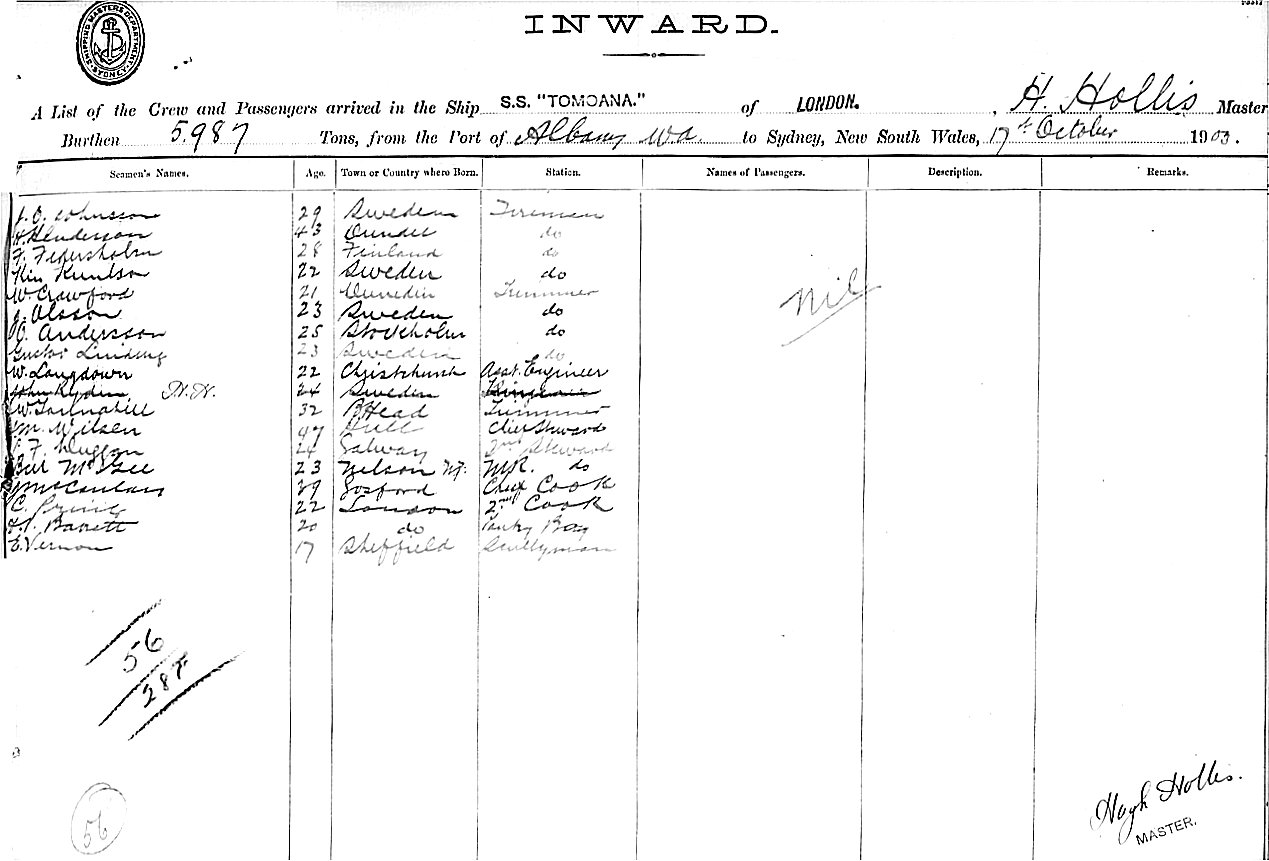 SHIPPING MASTERS DEPARTMENT SYDNEY
INWARD.
A List of the Crew and Passengers arrived in the Ship S.S. "TOMOANA." of LONDON. , H. Hollis Master
Burthen 5.987 Tons, from the Port of Albany W.A. to Sydney, New South Wales, 17th October 1903.
Seamen's Names. Age. Town or Country where Born. Station. Names of Passengers. Description. Remarks.
J. O. Johnsson 29 Sweden Firemen
H. Henderson 43 Dundee do
F. Federsholm 28 Finland do
22 Sweden do
W. Crawford 21 Dunedin Trimmer
J. Olsson 23 Sweden do
Nil
O. Andersson 25 Stockholm do
Gustav 23 Sweden do
W. Langdown 22 Christchurch Asst. Engineer
John Ryden 24 Sweden
W. Tannahill 32 B. Head Trimmer
M. Wilsen 47 Hull Chief Steward
F. Duggan 24 Galway 2nd Steward
McGee 23 Nelson do
McCauley 39 Gosford Chief Cook
C. 22 London 2nd Cook
Barrett 20 do Pantry Boy
E. Vernon 17 Sheffield Scullyman
56
287
56
Hugh Hollis.
MASTER.